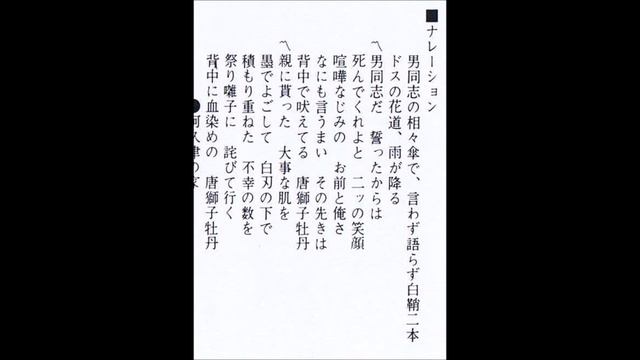 ■ナレーション
男同志の相々傘で、言わず語らず白鞘二本
ドスの花道、雨が降る
〽男同志だ 誓ったからは
死んでくれよと 二ッの笑顔
喧嘩なじみの お前と俺さ
なにも言うまい その先きは
背中で吠えてる 唐獅子牡丹
〽親に貰った 大事な肌を
墨でよごして 白刃の下で
積もり重ねた 不幸の数を
祭り囃子に 詫びて行く
背中に血染めの 唐獅子牡丹